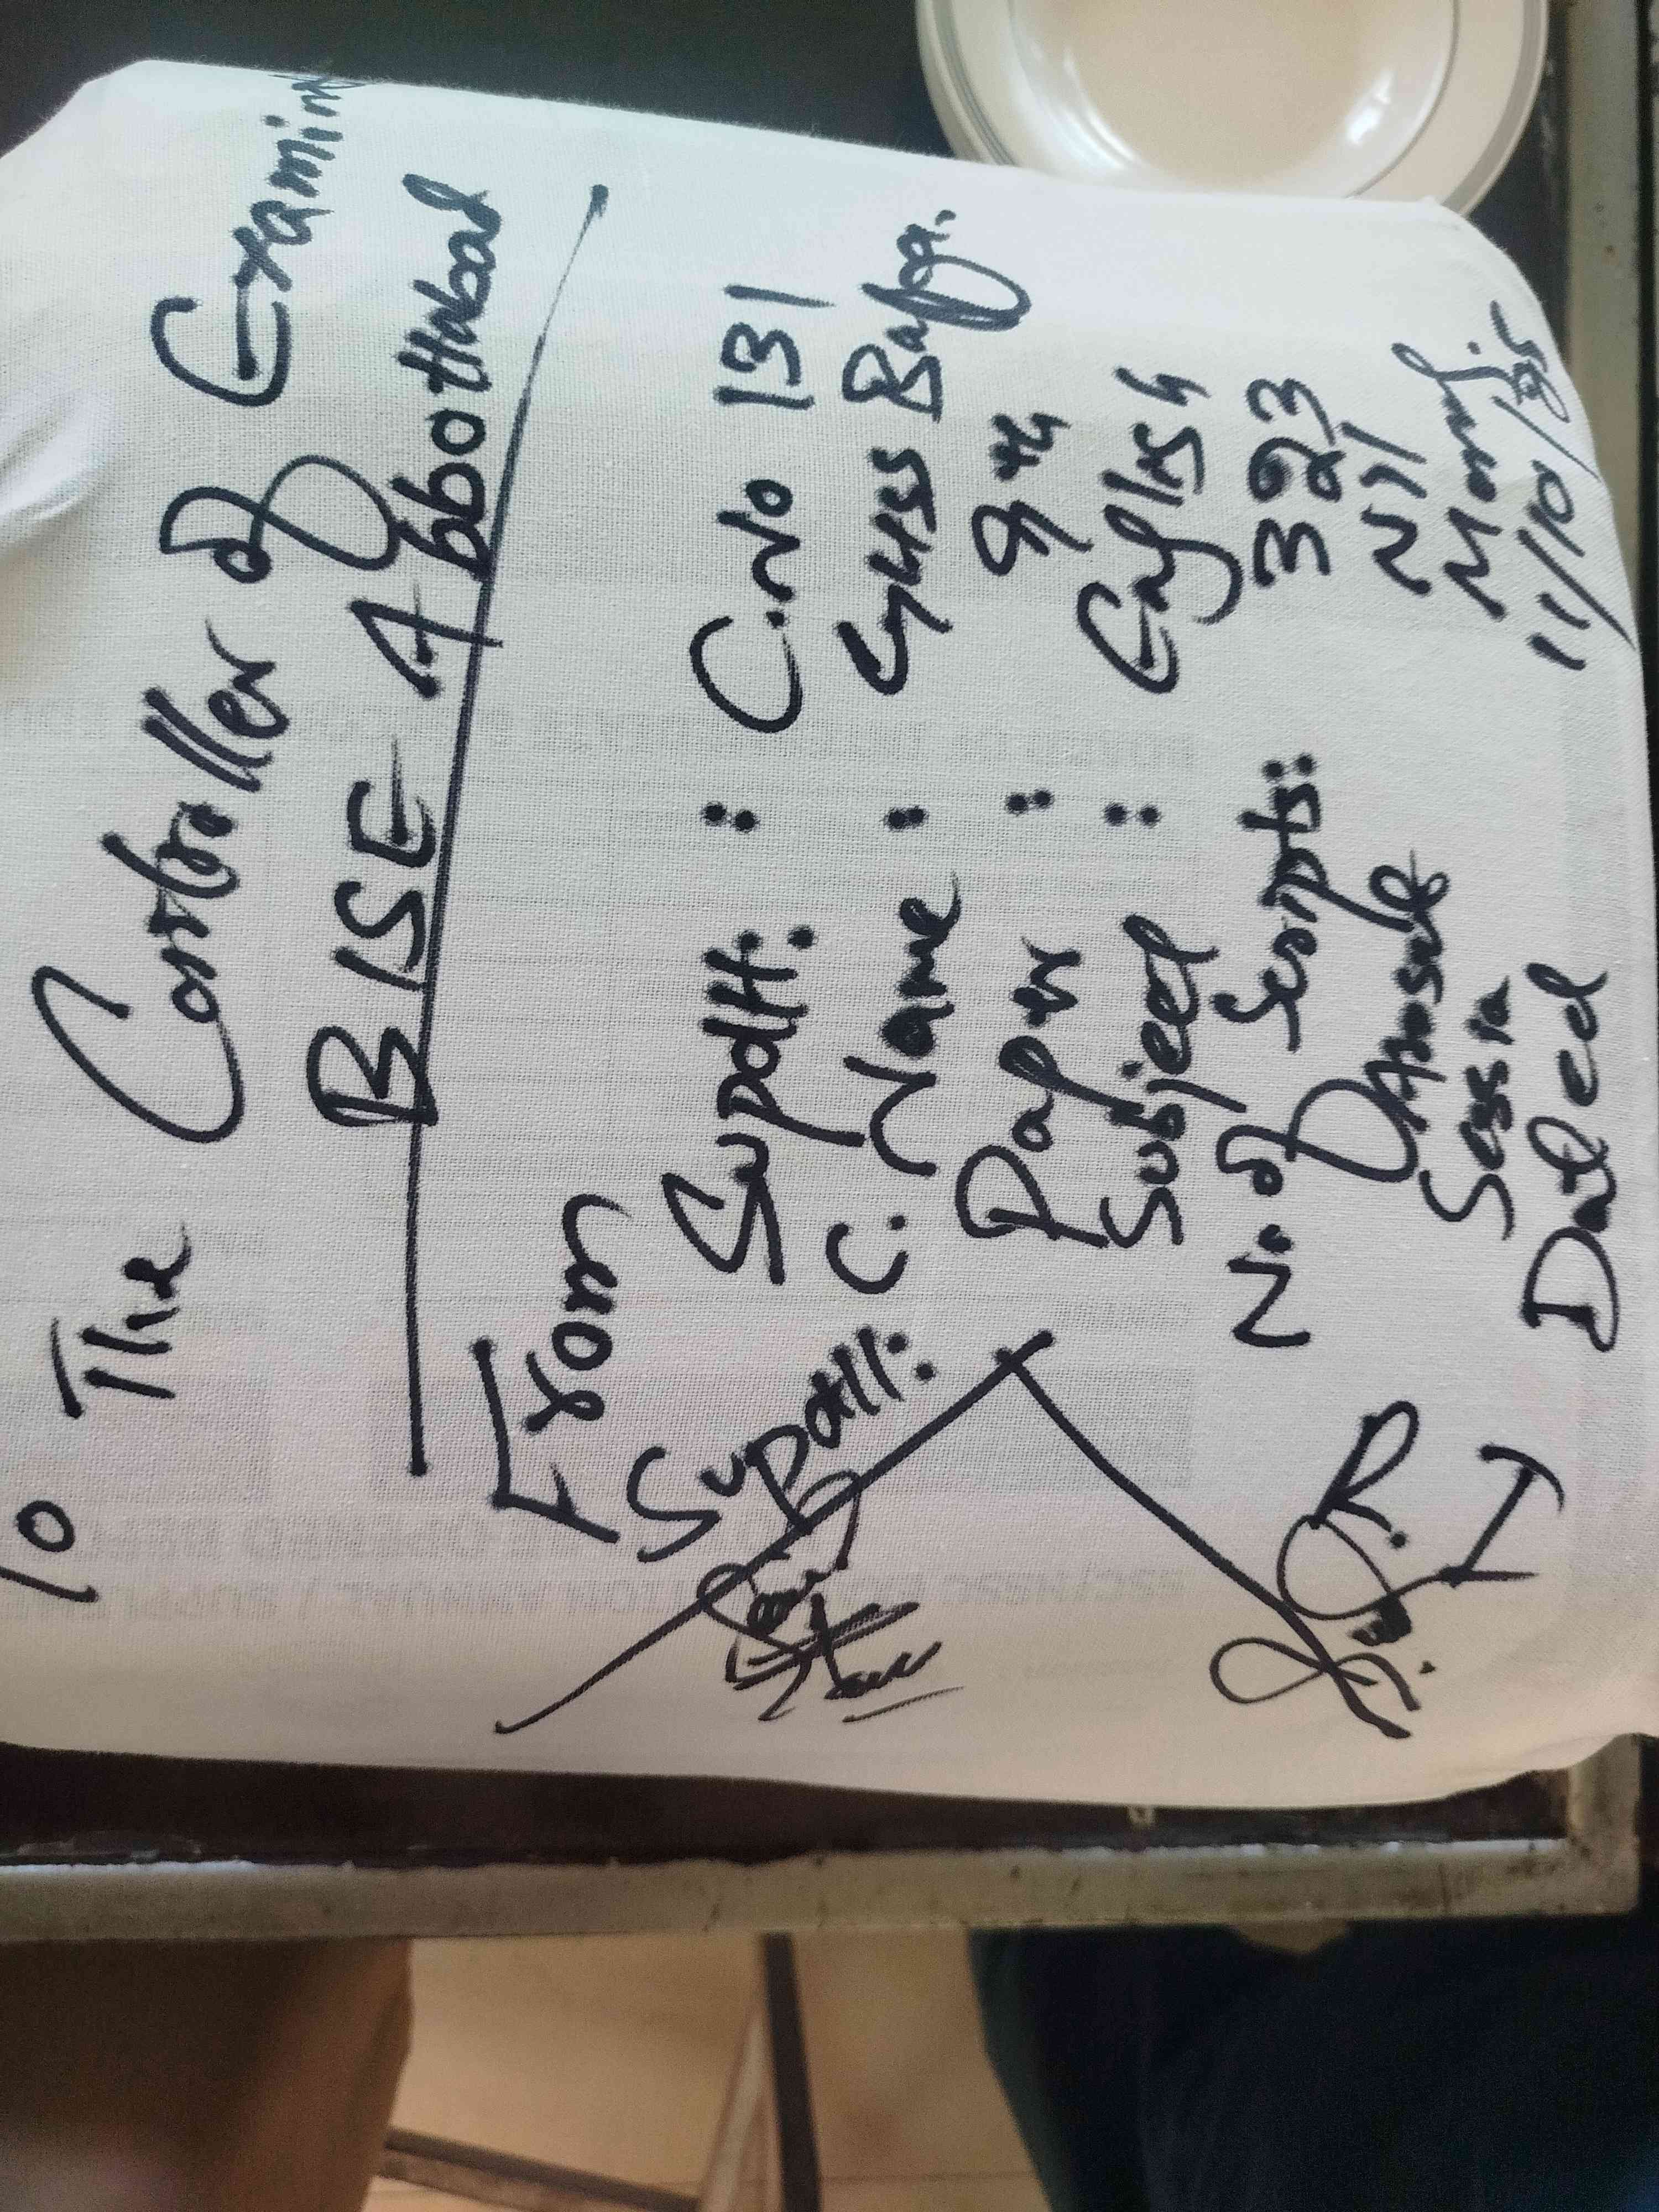 To The Controller of Examin
BISE Abbottabad
From
Supdtt: : C.No 131
C. Name : GHSS Bafa.
Paper : 9th
Subject : English
No of Scripts: 393
Nil
Session Morng.
Dated 11/10/25
Supdtt:
R.I